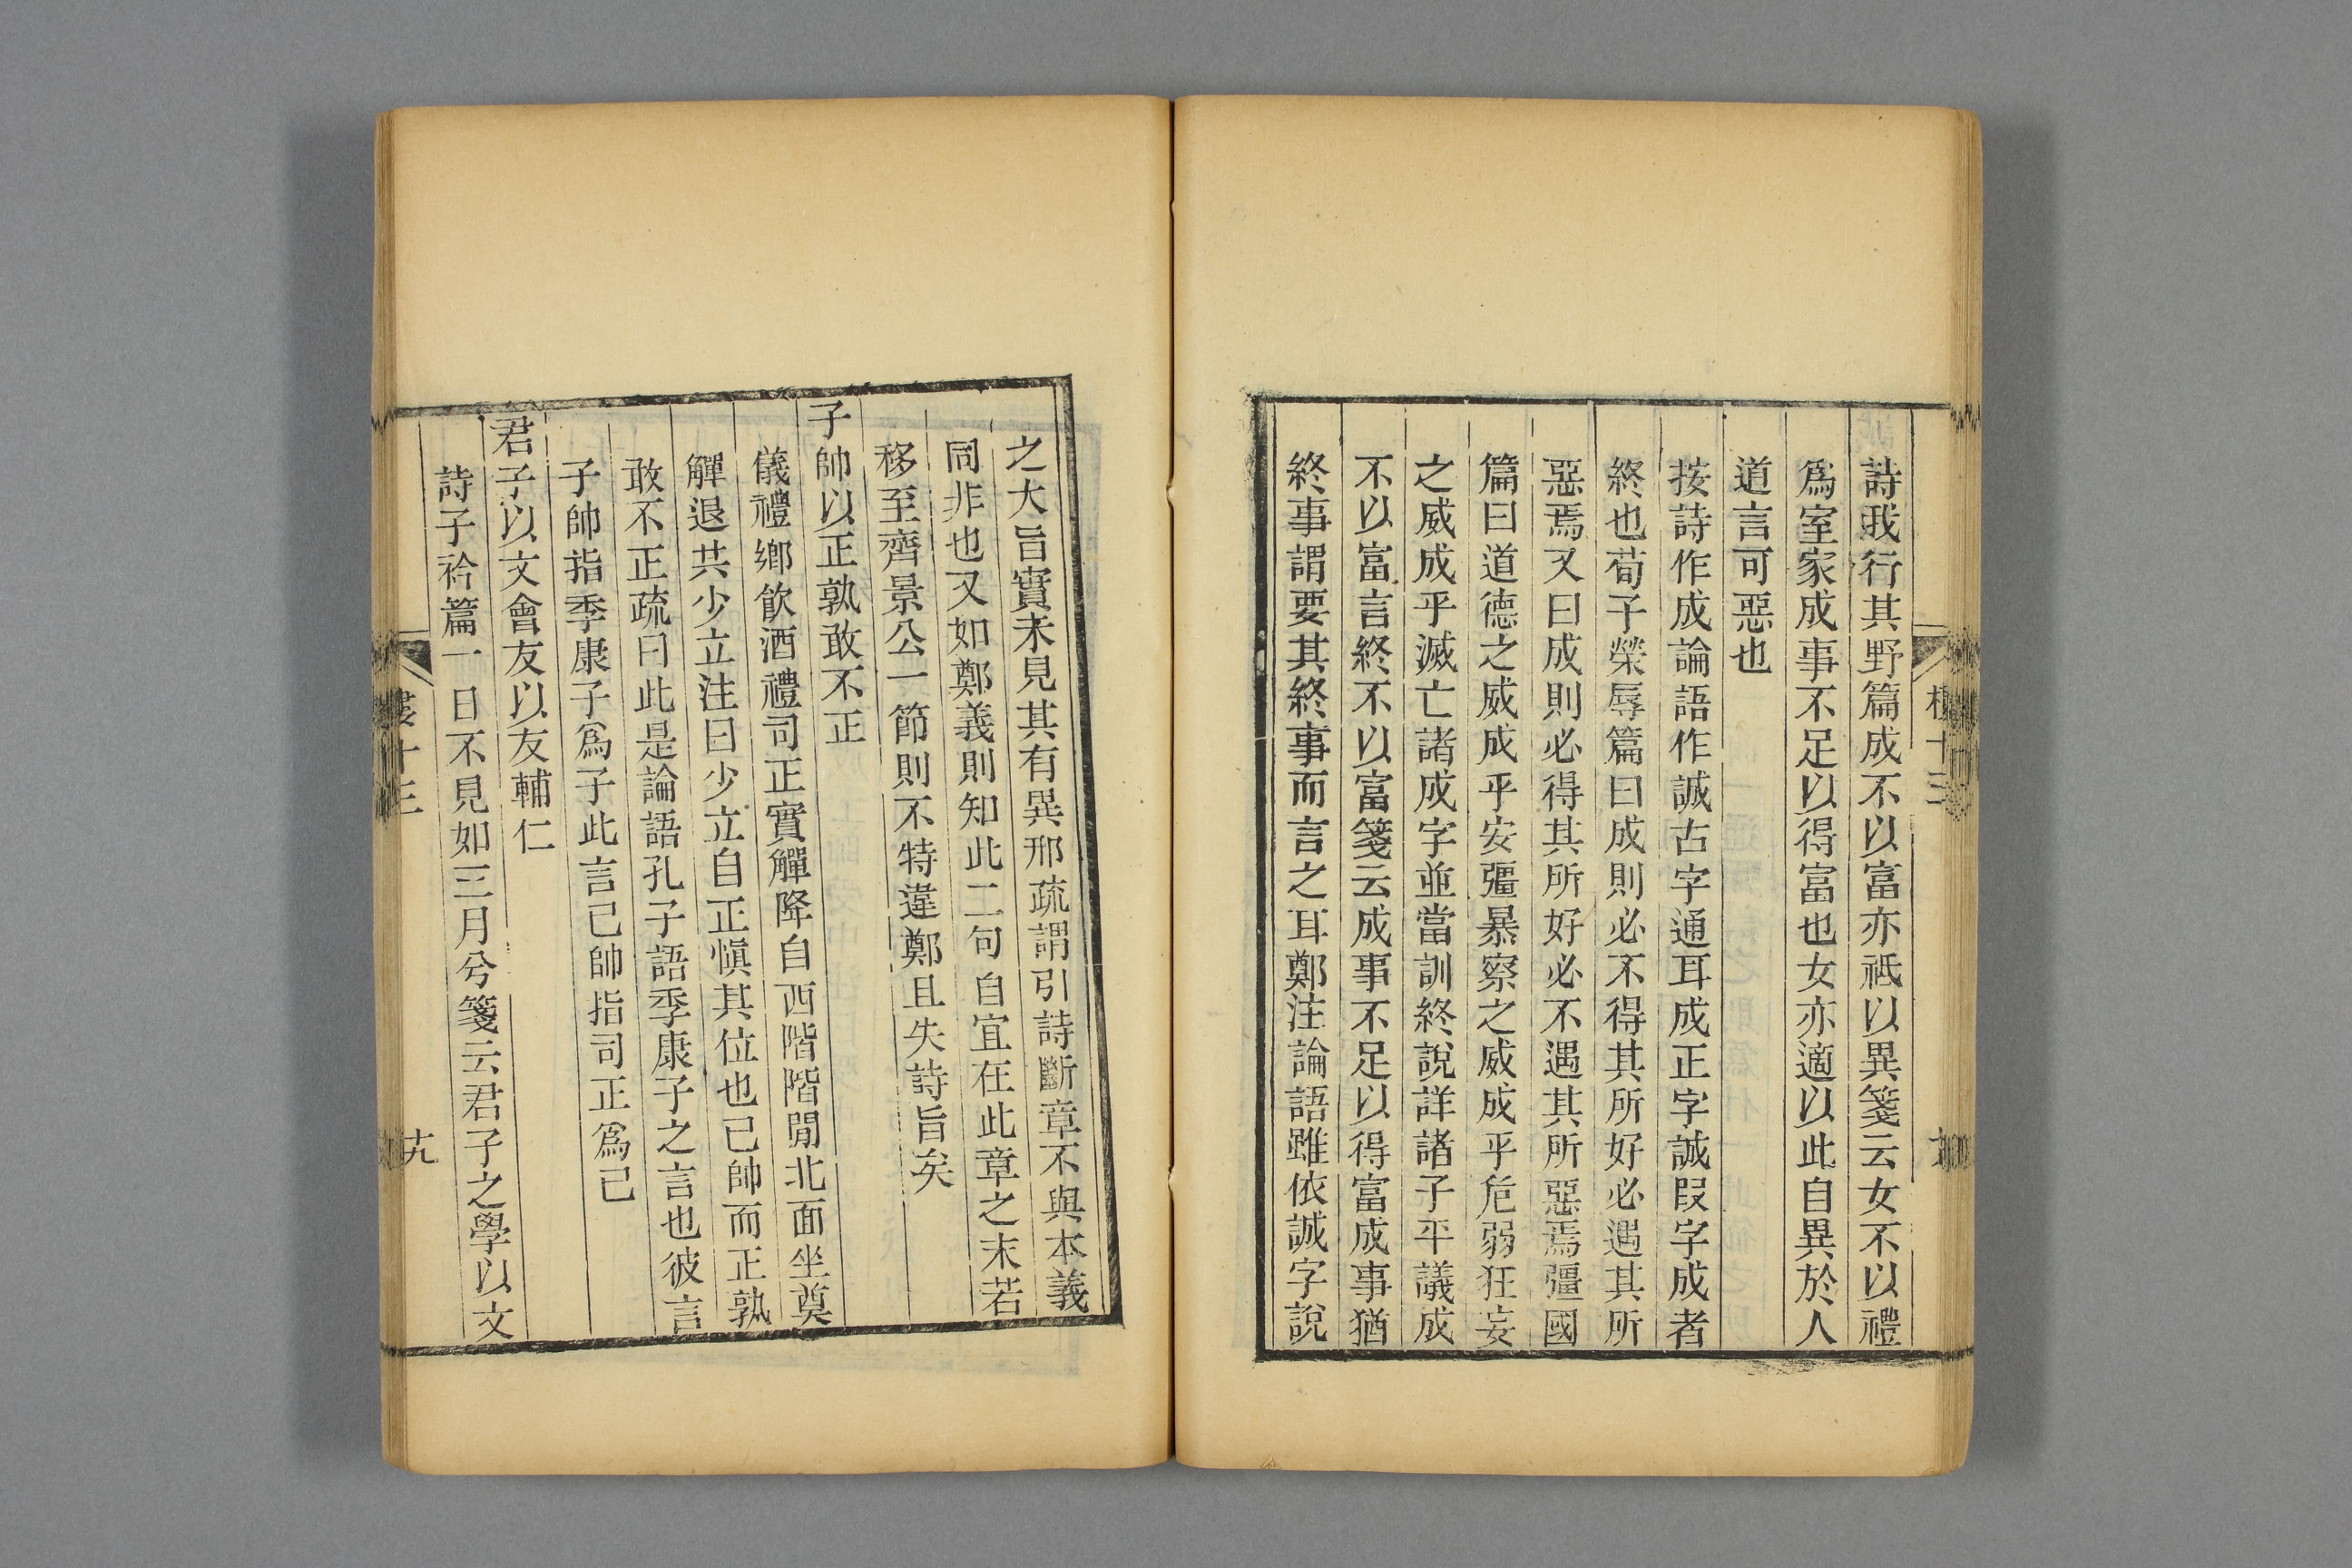 詩我行其野篇成不以富亦祗以異箋云女不以禮
爲室家成事不足以得富也女亦適以此自異於人
道言可惡也
按詩作成論語作誠古字通耳成正字誠叚字成者
終也荀子榮辱篇曰成則必不得其所好必遇其所
惡焉又曰成則必得其所好必不遇其所惡焉彊國
篇曰道德之威成乎安彊暴察之威成乎危弱狂妄
之威成乎滅亡諸成字並當訓終說詳諸子平議成
不以富言終不以富箋云成事不足以得富成事猶
終事謂要其終事而言之耳鄭注論語雖依誠字說
之大旨實未見其有異邢疏謂引詩斷章不與本義
同非也又如鄭義則知此二句自宜在此章之末若
移至齊景公一節則不特違鄭且失詩旨矣
子帥以正孰敢不正
儀禮鄉飲酒禮司正實觶降自西階階閒北面坐奠
觶退共少立注曰少立自正愼其位也己帥而正孰
敢不正疏曰此是論語孔子語季康子之言也彼言
子帥指季康子爲子此言己帥指司正爲己
君子以文會友以友輔仁
詩子衿篇一日不見如三月兮箋云君子之學以文
十三
十九